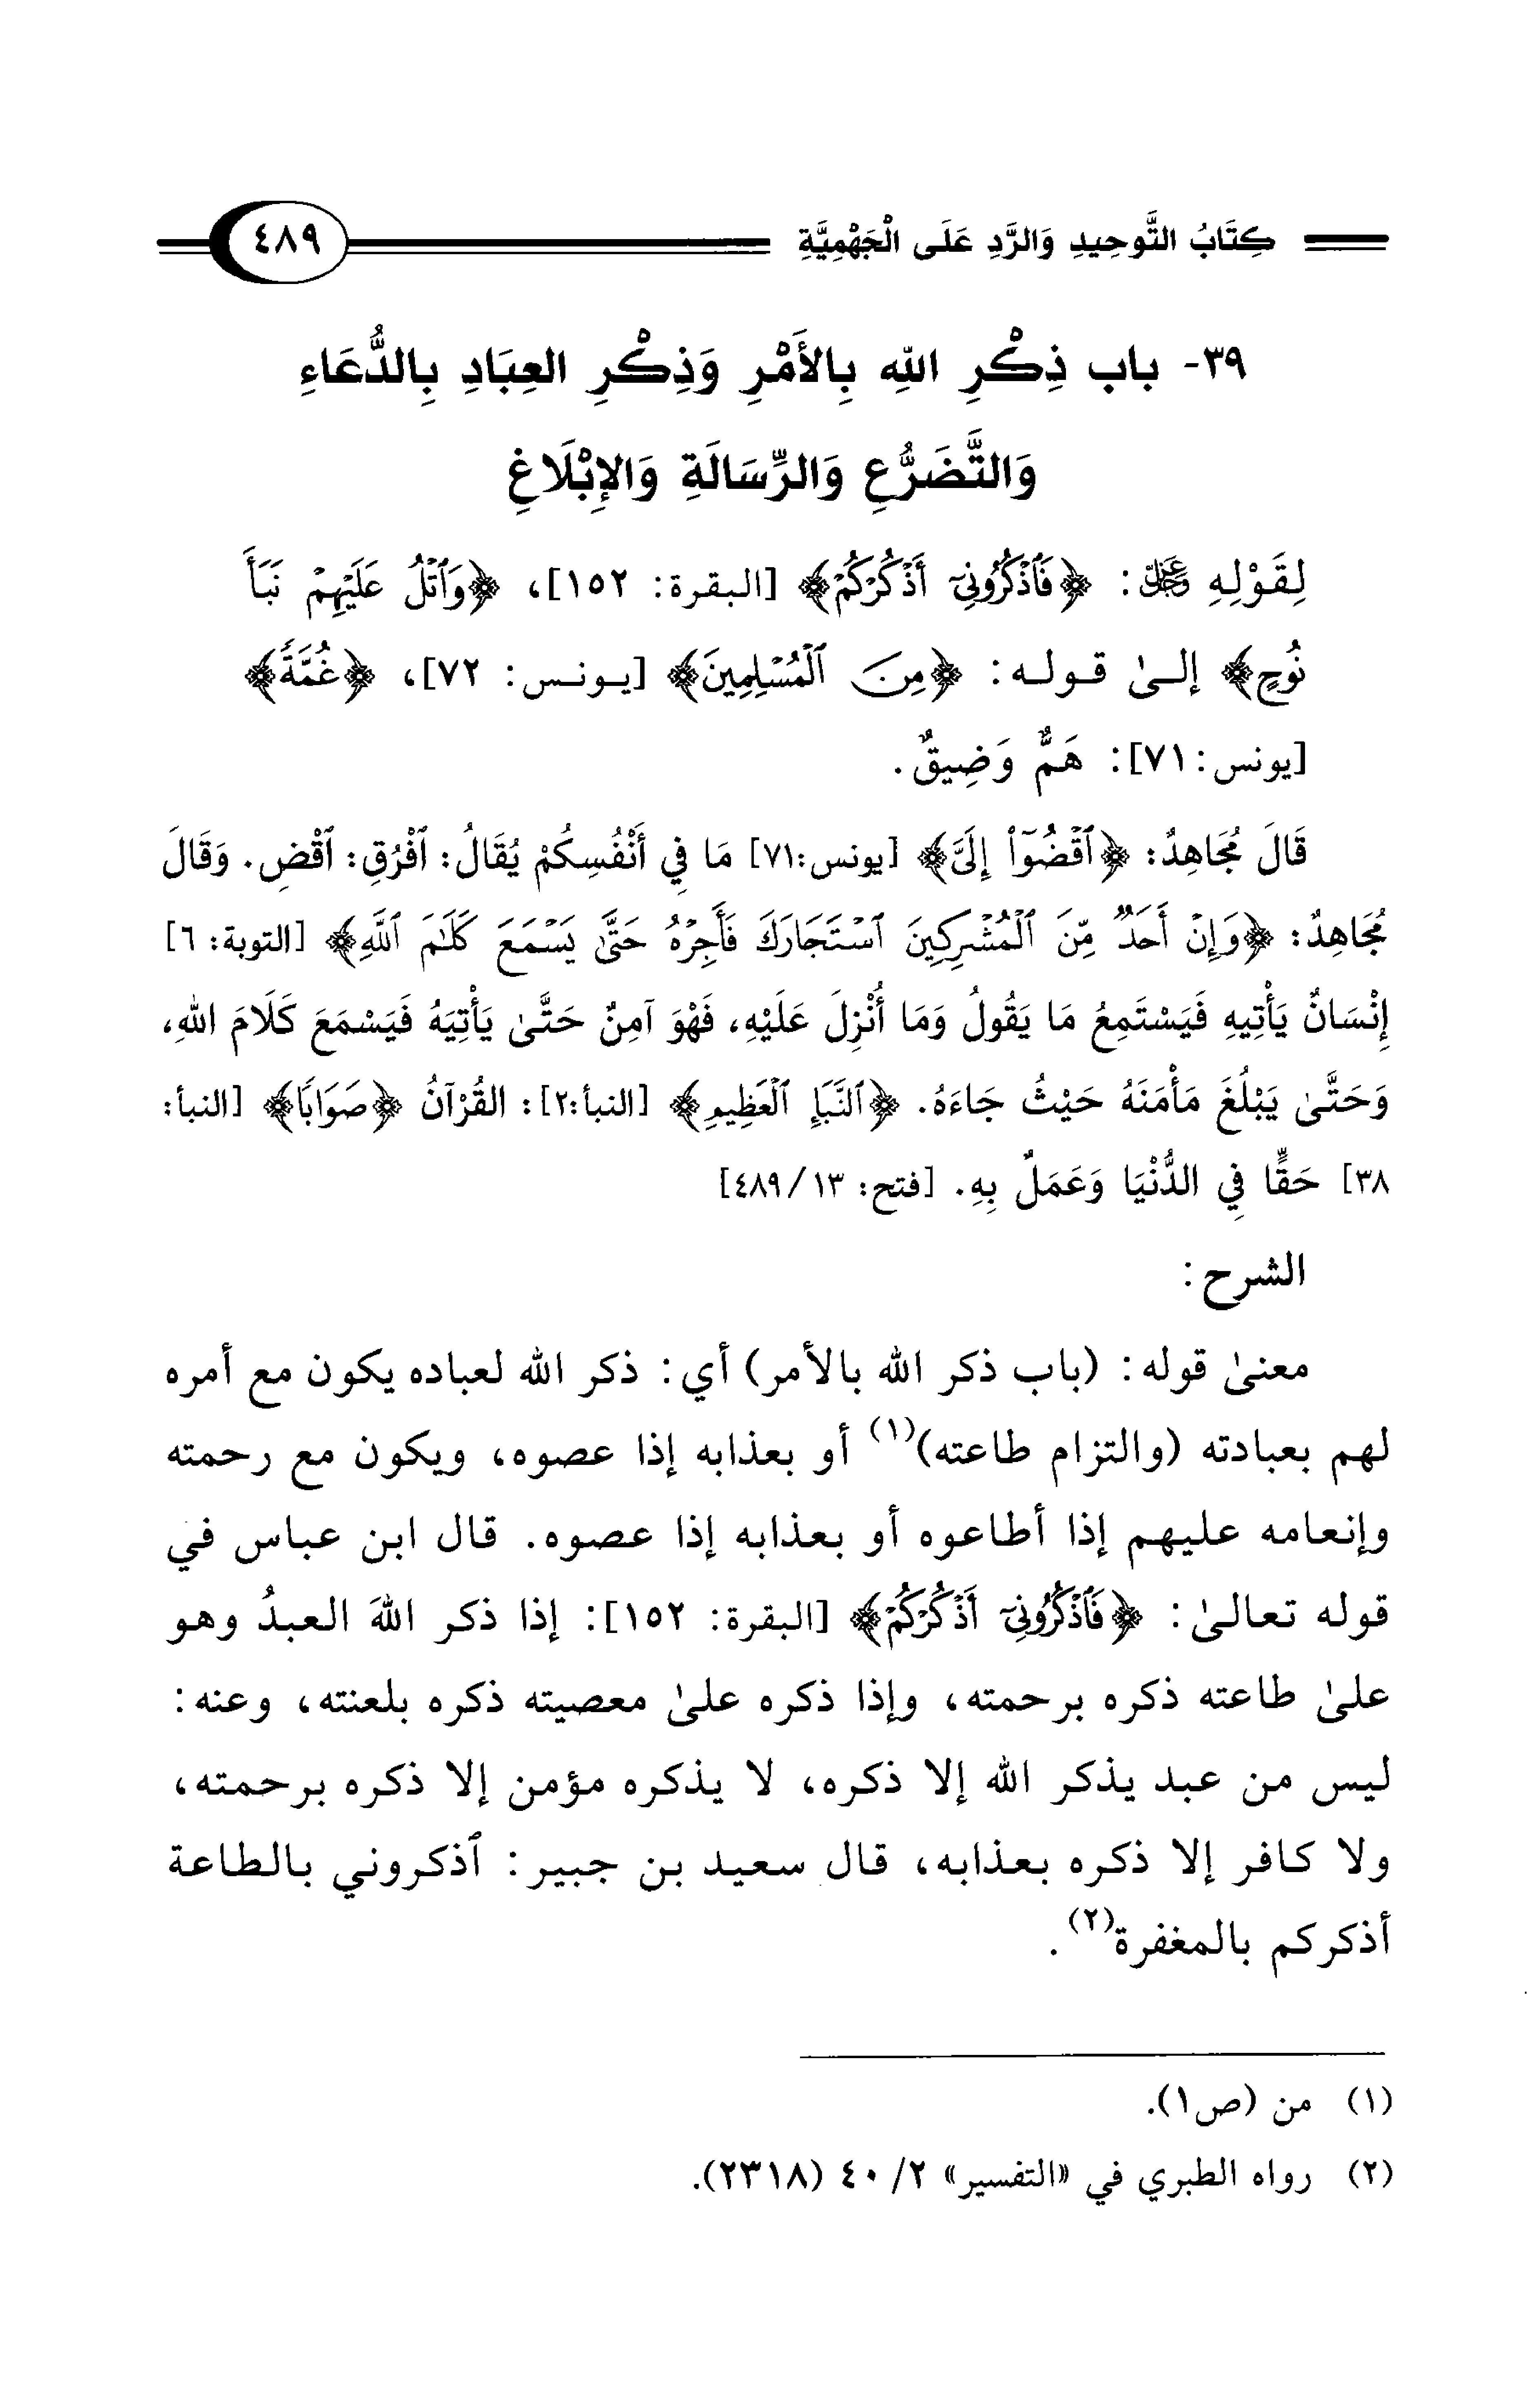 كِتَابُ التَّوحِيدِ وَالرَّدِ عَلَى الْجَهْمِيَّةِ ٤٨٩
٣٩- باب ذِكْرِ اللهِ بِالأَمْرِ وَذِكْرِ العِبَادِ بِالدُّعَاءِ
وَالتَّضَرُّعِ وَالرِّسَالَةِ وَالإِبْلَاغِ
لِقَوْلِهِ عَزَّ وَجَلَّ: ﴿فَٱذْكُرُونِىٓ أَذْكُرْكُمْ﴾ [البقرة: ١٥٢]، ﴿وَٱتْلُ عَلَيْهِمْ نَبَأَ
نُوحٍ﴾ إلىٰ قوله: ﴿مِنَ ٱلْمُسْلِمِينَ﴾ [يونس: ٧٢]، ﴿غُمَّةً﴾
[يونس: ٧١]: هَمٌّ وَضِيقٌ.
قَالَ مُجَاهِدٌ: ﴿ٱقْضُوٓا۟ إِلَىَّ﴾ [يونس:٧١] مَا فِي أَنْفُسِكُمْ يُقَالُ: ٱفْرُقِ: ٱقْضِ. وَقَالَ
مُجَاهِدٌ: ﴿وَإِنْ أَحَدٌ مِّنَ ٱلْمُشْرِكِينَ ٱسْتَجَارَكَ فَأَجِرْهُ حَتَّىٰ يَسْمَعَ كَلَٰمَ ٱللَّهِ﴾ [التوبة: ٦]
إِنْسَانٌ يَأْتِيهِ فَيَسْتَمِعُ مَا يَقُولُ وَمَا أُنْزِلَ عَلَيْهِ، فَهْوَ آمِنٌ حَتَّىٰ يَأْتِيَهُ فَيَسْمَعَ كَلَامَ اللهِ،
وَحَتَّىٰ يَبْلُغَ مَأْمَنَهُ حَيْثُ جَاءَهُ. ﴿ٱلنَّبَإِ ٱلْعَظِيمِ﴾ [النبأ:٢]: القُرْآنُ ﴿صَوَابًا﴾ [النبأ:
٣٨] حَقًّا فِي الدُّنْيَا وَعَمَلٌ بِهِ. [فتح: ١٣/ ٤٨٩]
الشرح:
معنىٰ قوله: (باب ذكر الله بالأمر) أي: ذكر الله لعباده يكون مع أمره
لهم بعبادته (والتزام طاعته)(١) أو بعذابه إذا عصوه، ويكون مع رحمته
وإنعامه عليهم إذا أطاعوه أو بعذابه إذا عصوه. قال ابن عباس في
قوله تعالىٰ: ﴿فَٱذْكُرُونِىٓ أَذْكُرْكُمْ﴾ [البقرة: ١٥٢]: إذا ذكر اللهَ العبدُ وهو
علىٰ طاعته ذكره برحمته، وإذا ذكره علىٰ معصيته ذكره بلعنته، وعنه:
ليس من عبد يذكر الله إلا ذكره، لا يذكره مؤمن إلا ذكره برحمته،
ولا كافر إلا ذكره بعذابه، قال سعيد بن جبير: ٱذكروني بالطاعة
أذكركم بالمغفرة(٢).
(١) من (ص١).
(٢) رواه الطبري في «التفسير» ٢/ ٤٠ (٢٣١٨).